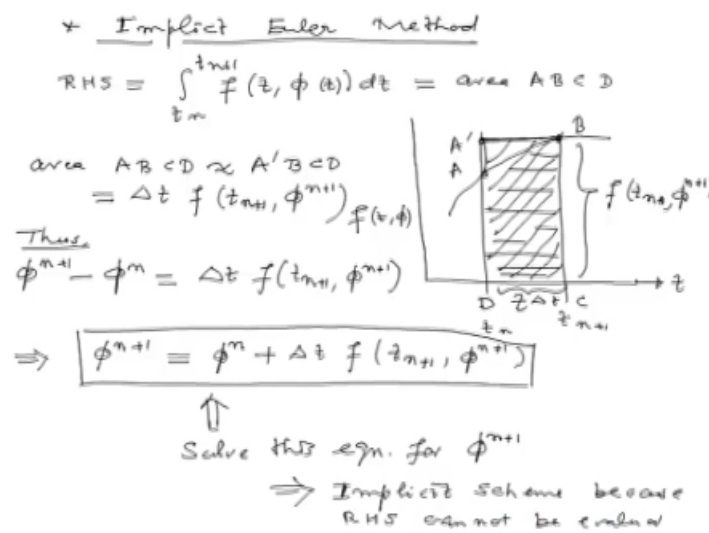 * Implict Euler Method
RHS = ∫_{t_n}^{t_{n+1}} f(t, φ(t)) dt = area ABCD
area ABCD ≈ A'BCD
= Δt f(t_{n+1}, φ^{n+1})
Thus,
φ^{n+1} - φ^n = Δt f(t_{n+1}, φ^{n+1})
⇒ φ^{n+1} = φ^n + Δt f(t_{n+1}, φ^{n+1})
⇑
Solve this eqn. for φ^{n+1}
⇒ Implicit scheme because
RHS cannot be
A'
B
A
f(t_{n+1}, φ^{n+1})
f(t,φ)
t
D Δt C
t_n t_{n+1}